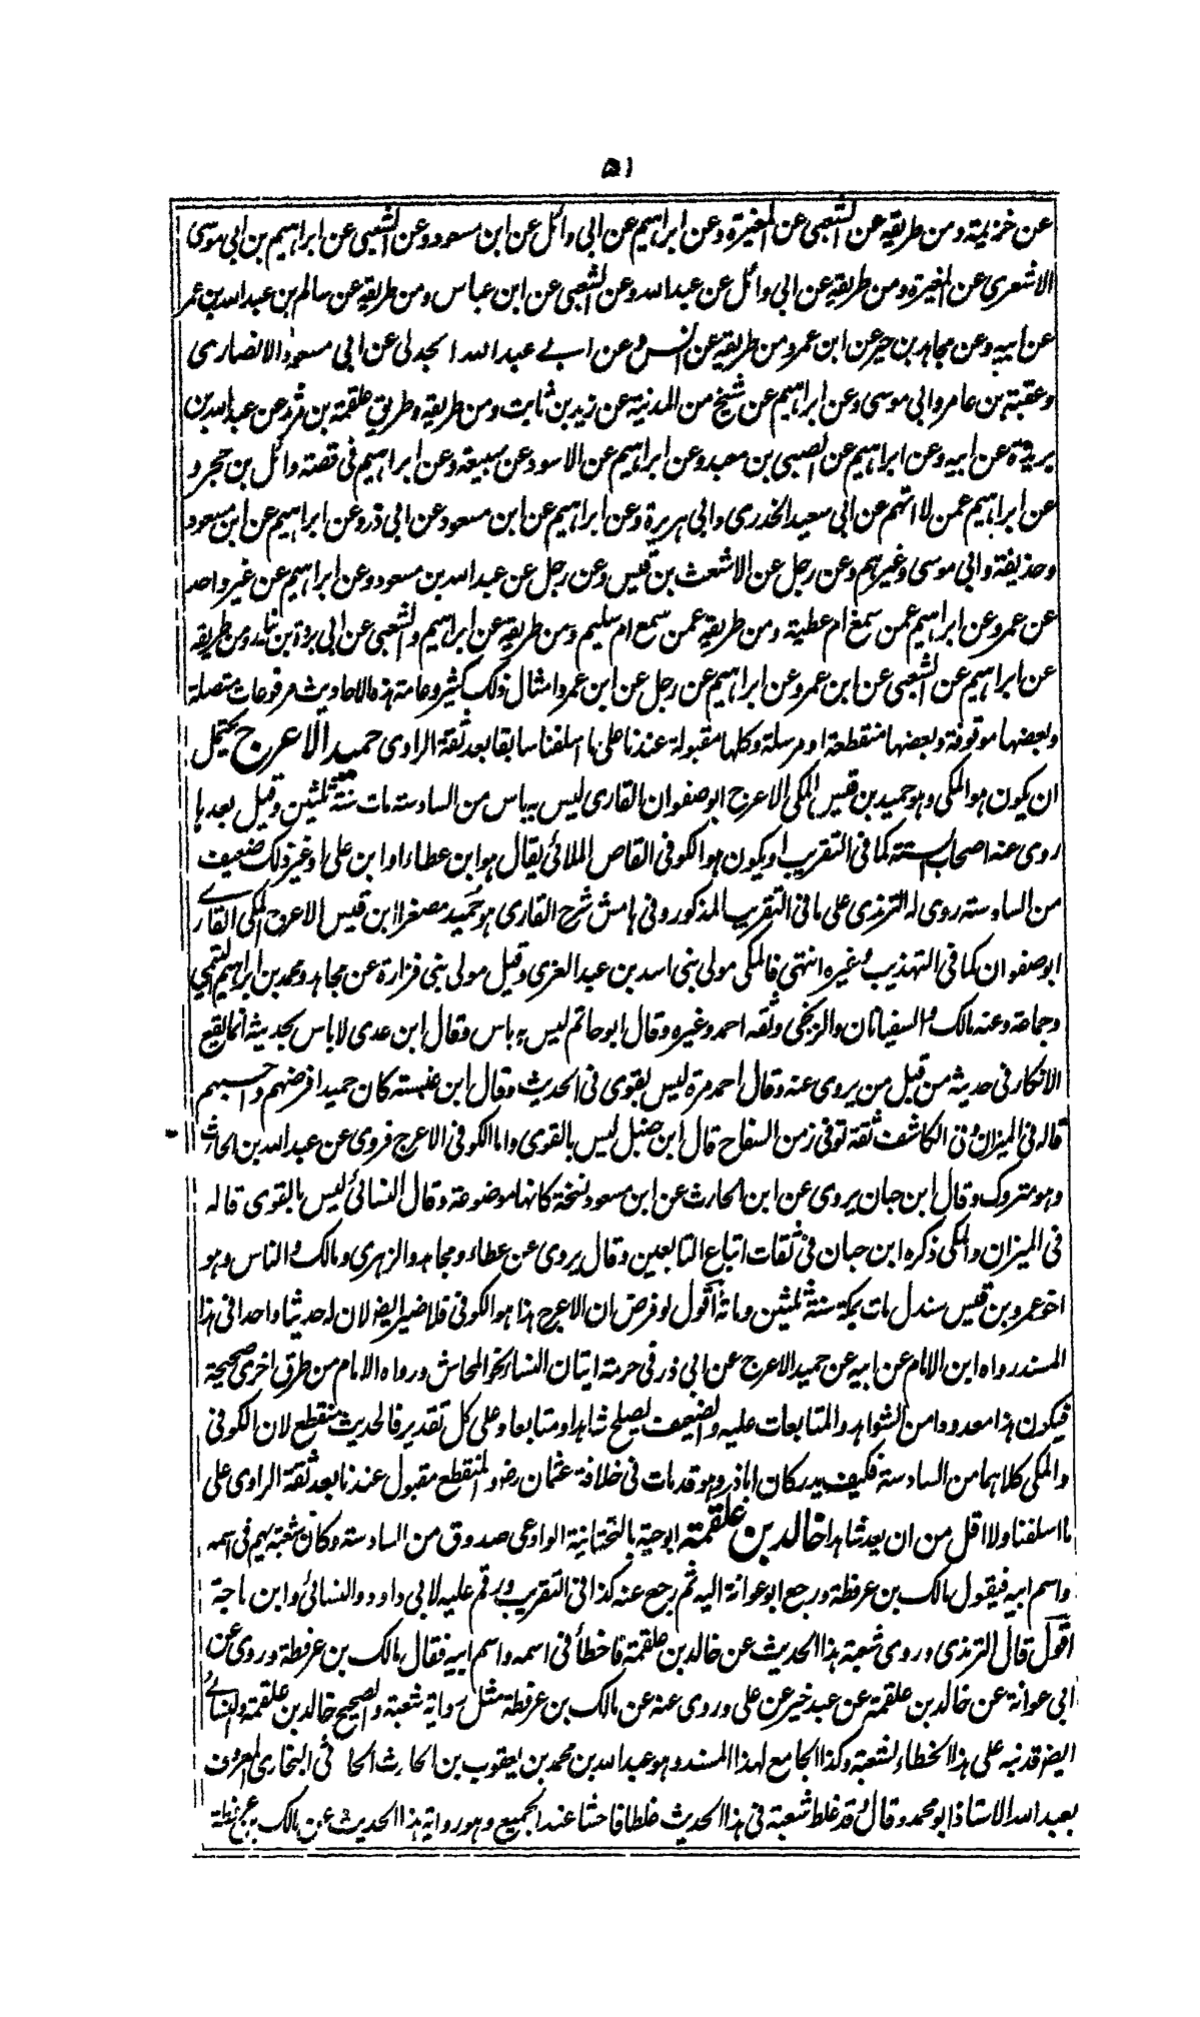 ۵۱
عن خزيمة ومن طريقه عن الشعبى عن المغيرة وعن ابراهيم عن ابى وائل عن ابن مسعود وعن الشعبى عن ابراهيم بن ابى موسى
الاشعرى عن المغيرة ومن طريقه عن ابى وائل عن عبد الله وعن الشعبى عن ابن عباس ومن طريقه عن سالم بن عبد الله بن عمر
عن ابيه وعن مجاهد بن جبر عن ابن عمر ومن طريقه عن انس وعن ابے عبد الله الجدلى عن ابى مسعود الانصارى
وعقبة بن عامر وابى موسى وعن ابراهيم عن شيخ من المدنية عن زيد بن ثابت ومن طريقه وطريق علقمة بن مرثد عن عبد الله بن
بريدة عن ابيه وعن ابراهيم عن الصبى بن معبد وعن ابراهيم عن الاسود عن سبيعة وعن ابراهيم فى قصة وائل بن حجر و
عن ابراهيم عمن لا اتهم عن ابى سعيد الخدرى وابى هريرة وعن ابراهيم عن ابن مسعود عن ابى ذر وعن ابراهيم عن ابن مسعود
وحذيفة وابى موسى وغيرهم وعن رجل عن الاشعث بن قيس وعن رجل عن عبد الله بن مسعود وعن ابراهيم عن غير واحد
عن عمر وعن ابراهيم عمن سمع ام عطية ومن طريقه عمن سمع ام سليم ومن طريقه عن ابراهيم والشعبى عن ابى بردة بن نيار ومن طريقه
عن ابراهيم عن الشعبى عن ابن عمر وعن ابراهيم عن رجل عن ابن عمر وامثال ذلك كثير وعامة هذه الاحاديث مرفوعات متصلة
وبعضها موقوفة وبعضها منقطعة او مرسلة وكلها مقبولة عندنا على ما اسلفنا سابقا بعد ثقة الراوى حميد الاعرج يحتمل
ان يكون هو المكى وهو حميد بن قيس المكى الاعرج ابو صفوان القارى ليس به باس من السادسة مات سنة ثلثين وقيل بعدها
روى عنه اصحاب الستة كما فى التقريب او يكون هو الكوفى القاص الملائى يقال هو ابن عطاء او ابن على او غير ذلك ضعيف
من السادسة روى له الترمذى على ما فى التقريب المذكور وفى هامش شرح القارى هو حميد مصغرا ابن قيس الاعرج المكى القارے
ابو صفوان كما فى التهذيب وغيره انتهى فالمكى مولى بنى اسد بن عبد العزى وقيل مولى بنى فزارة عن مجاهد ومحمد بن ابراهيم التيمى
وجماعة وعنه مالك والسفيانان والزنجى وثقه احمد وغيره وقال ابو حاتم ليس به باس وقال ابن عدى لا باس بحديثه انما يقع
الانكار فى حديثه من قبل من يروى عنه وقال احمد مرة ليس بقوى فى الحديث وقال ابن عنبسة كان حميد افرضهم واحسبهم
قاله فى الميزان وفى الكاشف ثقة توفى زمن السفاح قال ابن حنبل ليس بالقوى واما الكوفى الاعرج فروى عن عبد الله بن الحارث
وهو متروك وقال ابن حبان يروى عن ابن الحارث عن ابن مسعود نسخة كانها موضوعة وقال النسائى ليس بالقوى قاله
فى الميزان والمكى ذكره ابن حبان فى ثقات اتباع التابعين وقال يروى عن عطاء ومجاهد والزهرى ومالك والناس وهو
اخو عمرو بن قيس سندل مات بمكة سنة ثلثين ومائة اقول لو فرض ان الاعرج هذا هو الكوفى فلا ضير ايضا لان له حديثا واحدا فى هذا
المسند رواه ابن الامام عن ابيه عن حميد الاعرج عن ابى ذر فى حرمة اتيان النساء نحو المحاش ورواه الامام من طرق اخرى صحيحة
فيكون هذا معدودا من الشواهد والمتابعات عليه والضعيف يصلح شاهدا ومتابعا وعلى كل تقدير فالحديث منقطع لان الكوفى
والمكى كلاهما من السادسة فكيف يدركان اباذر وهو قد مات فى خلافة عثمان رض والمنقطع مقبول عندنا بعد ثقة الراوى على
ما اسلفنا ولا اقل من ان يعد شاهدا خالد بن علقمة ابو حية بالتحتانية الوادعى صدوق من السادسة وكان شعبة يهم فى اسمه
واسم ابيه فيقول مالك بن عرفطة ورجع ابو عوانة اليه ثم رجع عنه كذا فى التقريب ورقم عليه لابى داود والنسائى وابن ماجة
اقول قال الترمذى وروى شعبة هذا الحديث عن خالد بن علقمة فاخطأ فى اسمه واسم ابيه فقال مالك بن عرفطة وروى عن
ابى عوانة عن خالد بن علقمة عن عبد خير عن على وروى عنه عن مالك بن عرفطة مثل رواية شعبة والصحيح خالد بن علقمة والنسائے
ايضا قد نبه على هذا الخطاء لشعبة وكذا الجامع لهذا المسند وهو عبد الله بن محمد بن يعقوب بن الحارث الحارثى البخارى المعروف
بعبد الله الاستاذ ابو محمد وقال وقد غلط شعبة فى هذا الحديث غلطا فاحشا عند الجميع وهو رواية هذا الحديث عن مالك بن عرفطة